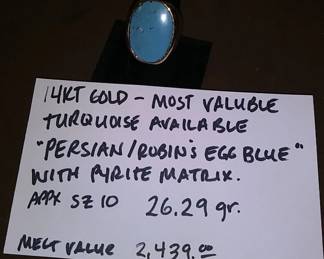 14KT GOLD - MOST VALUBLE
TURQUOISE AVAILABLE
"PERSIAN/ROBIN'S EGG BLUE"
WITH PYRITE MATRIX.
APPX SZ 10 26.29 gr.
MELT VALUE 2,439.00